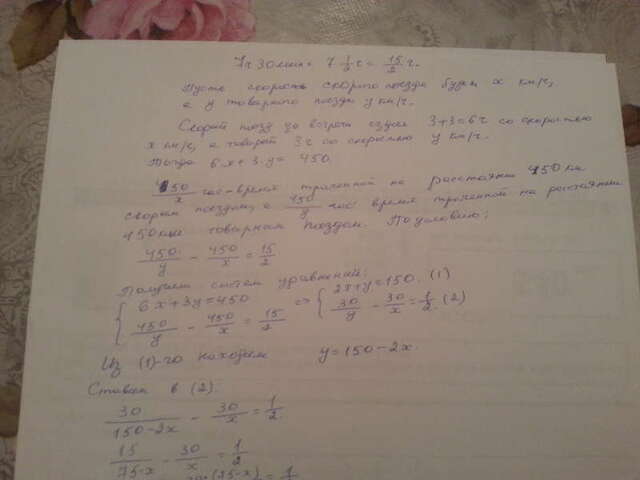 7ч 30мин = 7 1/2 ч = 15/2 ч.
Пусть скорость скорого поезда будем x км/ч,
а у товарного поезда y км/ч.
Скорый поезд до встречи ездил 3+3=6ч со скоростью
x км/ч, а товарный 3ч со скоростью y км/ч.
Тогда 6x+3y=450
450/x час-время траченной на расстояни 450км
скорым поездом, а 450/y час время траченной на расстояни
450км товарным поездом. По условию:
450/y - 450/x = 15/2
Получим систем уравнений:
{ 6x+3y=450 => { 2x+y=150. (1)
450/y - 450/x = 15/2 30/y - 30/x = 1/2. (2)
Из (1)-го находим y=150-2x.
Ставим в (2):
30/(150-2x) - 30/x = 1/2
15/(75-x) - 30/x = 1/2
(75-x) 1